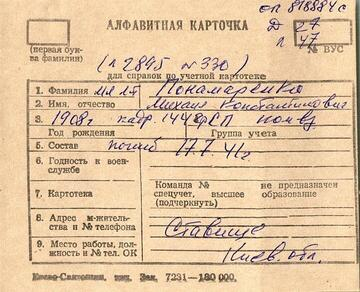 оп 818884 с
АЛФАВИТНАЯ КАРТОЧКА
Д 27
л 47 № ВУС
(первая бук-
ва фамилии)
(л 2845 № 330)
для справок по учетной картотеке
1. Фамилия мл л-т Понамаренко
2. Имя, отчество Михаил Константинович
3. 1908г кадр. 144 ком вз
Год рождения Группа учета
5. Состав погиб 17.7.41г.
6. Годность к воен-
службе
7. Картотека
Команда № не предназначен
спецучет, высшее образование
(подчеркнуть)
8. Адрес м-жительст-
ва и № телефона Ставище
9. Место работы, долж-
ность и № тел. ОК Киев обл.
тип. Зак. 7231—180 000.